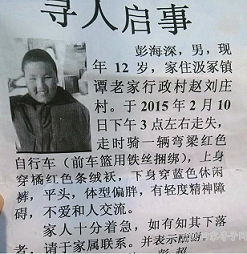 寻人启事
彭海深，男，现
年 12 岁，家住汲冢镇
谭老家行政村赵刘庄
村。于 2015 年 2 月 10
日下午 3 点左右走失，
走时骑一辆弯梁红色
自行车（前车篮用铁丝捆绑），上身
穿橘红色条绒袄，下身穿蓝色休闲
裤，平头，体型偏胖，有轻度精神障
碍，不爱和人交流。
家人十分着急，如有知其下落
者，请于家属联系。并表示酬谢